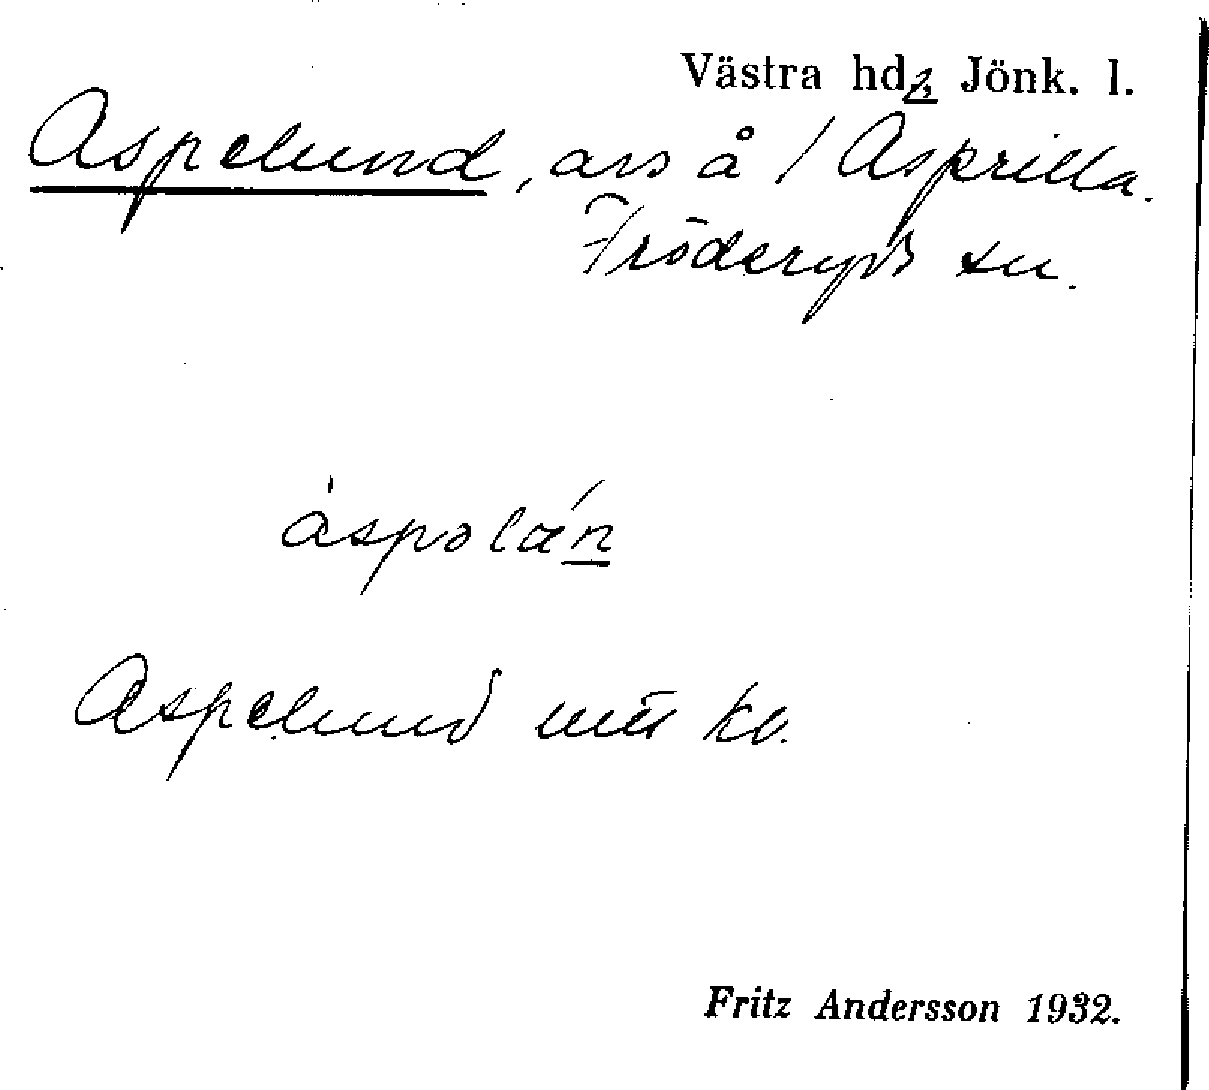 Västra hd, Jönk. l.
Aspelund, avs å 1 Asprilla.
Fröderyds sn.
Aspelund
Fritz Andersson 1932.